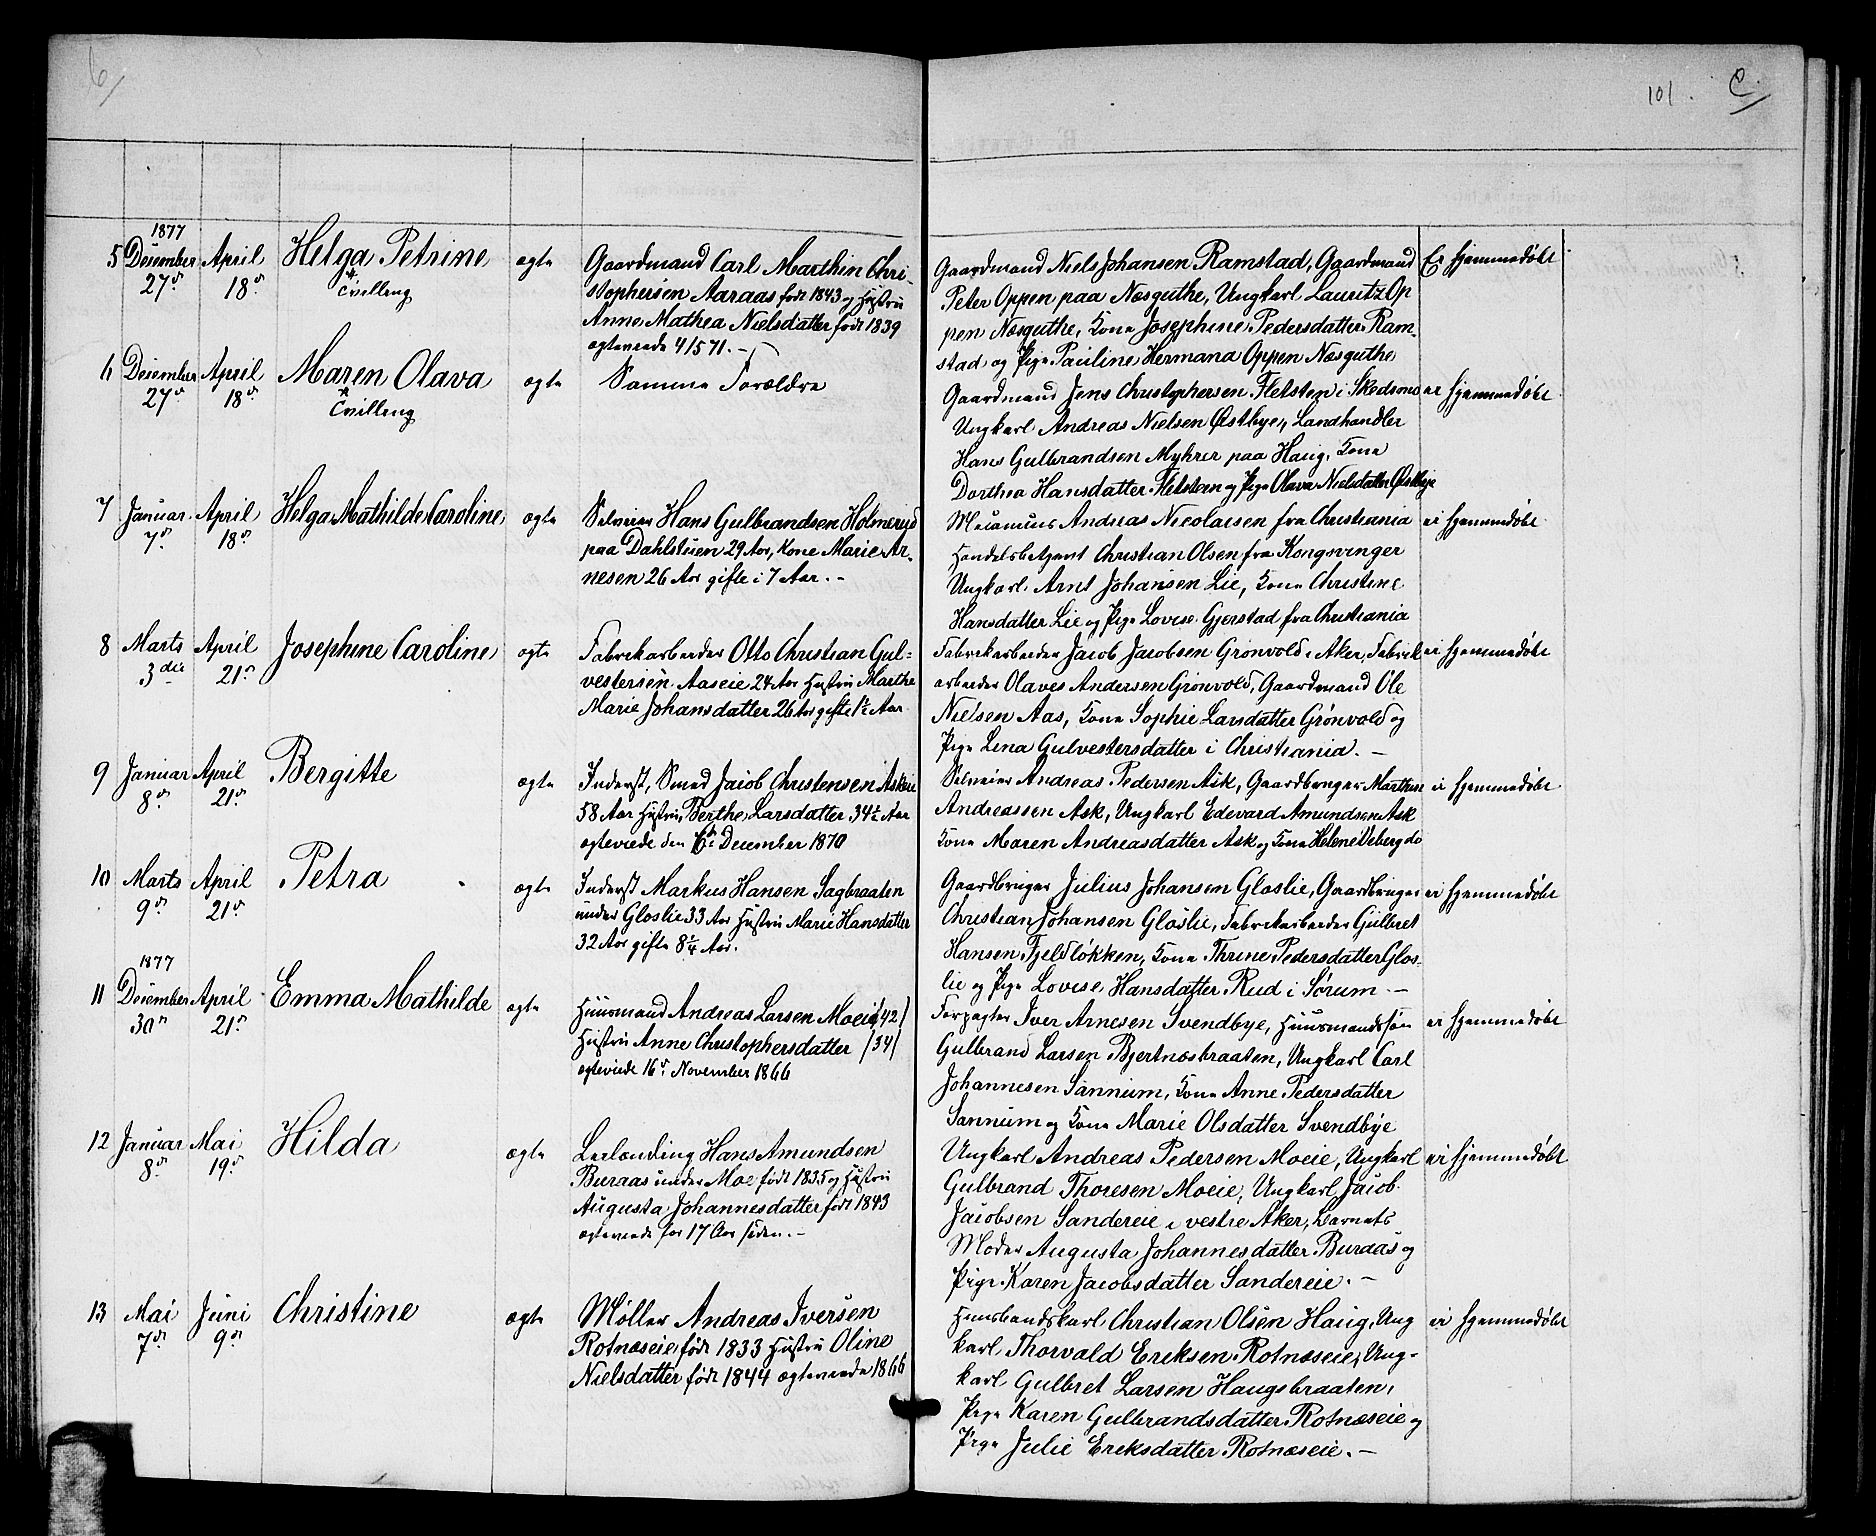 6
101. C.
1877
5 December 27de April 18de Helga Petrine ægte
Tvilling
Gaardmand Carl Marthin Chri-
stophersen Aaraas født 1843 og Hustru
Anne Mathea Nielsdatter født 1839
ægteviede 4/5 71. –
Gaardmand Niels Johansen Ramstad, Gaardmand
Peter Oppen paa Næsguthe, Ungkarl Lauritz Op
pen Næsguthe, Kone Josephine Pedersdatter Ram-
stad og Pige Pauline Hermana Oppen Næsguthe
Er hjemmedøbt
6 December 27de April 18de Maren Olava ægte
Tvilling
Samme Forældre
Gaardmand Jens Christophersen Fletsten i Skedsmo
Ungkarl Andreas Nielsen Østbye, Landhandler
Hans Gulbrandsen Myhrer paa Haug, Kone
Dorthea Hansdatter Fletsteen og Pige Olava Nielsdatter Østbye
er hjemmedøbt
7 Januar 7de April 18de Helga Mathilde Caroline ægte
Selveier Hans Gulbrandsen Holmeryd
paa Dahlstuen 29 Aar, Kone Marie Ar-
nesen 26 Aar gifte i 7 Aar. –
Mecanicus Andreas Nicolaisen fra Christiania
Handelsbetjent Christian Olsen fra Kongsvinger
Ungkarl Arnt Johansen Lie, Kone Christine
Hansdatter Lie og Pige Lovise Gjerstad fra Christiania
ei hjemmedøbt
8 Marts 3die April 21de Josephine Caroline ægte
Fabrikarbeider Otto Christian Gul-
vestersen Aaseie 24 Aar Hustru Marthe
Marie Johansdatter 26 Aar gifte 1½ Aar
Fabrikarbeider Jacob Jacobsen Grønvold i Aker, Fabrik
arbeider Olaves Andersen Grønvold, Gaardmand Ole
Nielsen Aas, Kone Sophie Larsdatter Grønvold og
Pige Lina Gulvestersdatter i Christiania. –
ei hjemmedøbt
9 Januar 8de April 21de Bergitte ægte
Inderst, Smed Jacob Christensen Askeie
58 Aar Hustru Berthe Larsdatter 34½ Aar
ægteviede den 6te December 1870
Selveier Andreas Pedersen Ask, Gaardbruger Marthin
Andreassen Ask, Ungkarl Edevard Amundsen Ask
Kone Maren Andreasdatter Ask og Kone Helene Veberg do
ei hjemmedøbt
10 Marts 9de April 21de Petra ægte
Inderst Markus Hansen Sagbraaten
under Gloslie 33 Aar Hustru Marie Hansdatter
32 Aar gifte 8¼ Aar.
Gaardbruger Julius Johansen Gloslie, Gaardbruger
Christian Johansen Gloslie, Fabrikarbeider Gulbret
Hansen Fjeldløkken, Kone Thrine Pedersdatter Glos-
lie og Pige Lovise Hansdatter Rud i Sørum. –
ei hjemmedøbt
1877
11 December 30de April 21de Emma Mathilde ægte
Huusmand Andreas Larsen Moeie /42/
Hustru Anne Christophersdatter /34/
ægteviede 16de November 1866
Forpagter Iver Arnesen Svendbye, Huusmandssøn
Gulbrand Larsen Bjertnæsbraaten, Ungkarl Carl
Johannesen Sannum, Kone Anne Pedersdatter
Sannum og Kone Marie Olsdatter Svendbye
er hjemmedøbt
12 Januar 8de Mai 19de Hilda ægte
Leilænding Hans Amundsen
Buraas under Moe født 1835 og Hustru
Augusta Johannesdatter født 1843
ægteviede for 17 Aar siden. –
Ungkarl Andreas Pedersen Moeie, Ungkarl
Gulbrand Thoresen Moeie, Ungkarl Jacob
Jacobsen Sandereie i vestre Aker, Barnets
Moder Augusta Johannesdatter Buraas og
Pige Karen Jacobsdatter Sandereie. –
ei hjemmedøbt
13 Mai 7de Juni 9de Christine ægte
Møller Andreas Iversen
Rotnæseie født 1833 Hustru Oline
Nielsdatter født 1844 ægteviede 1866
Huusbandskarl Christian Olsen Haug, Ung
karl Thorvald Eriksen Rotnæseie, Ung-
karl Gulbret Larsen Haugsbraaten,
Pige Karen Gulbrandsdatter Rotnæseie og
Pige Julie Eriksdatter Rotnæseie. –
ei hjemmedøbt